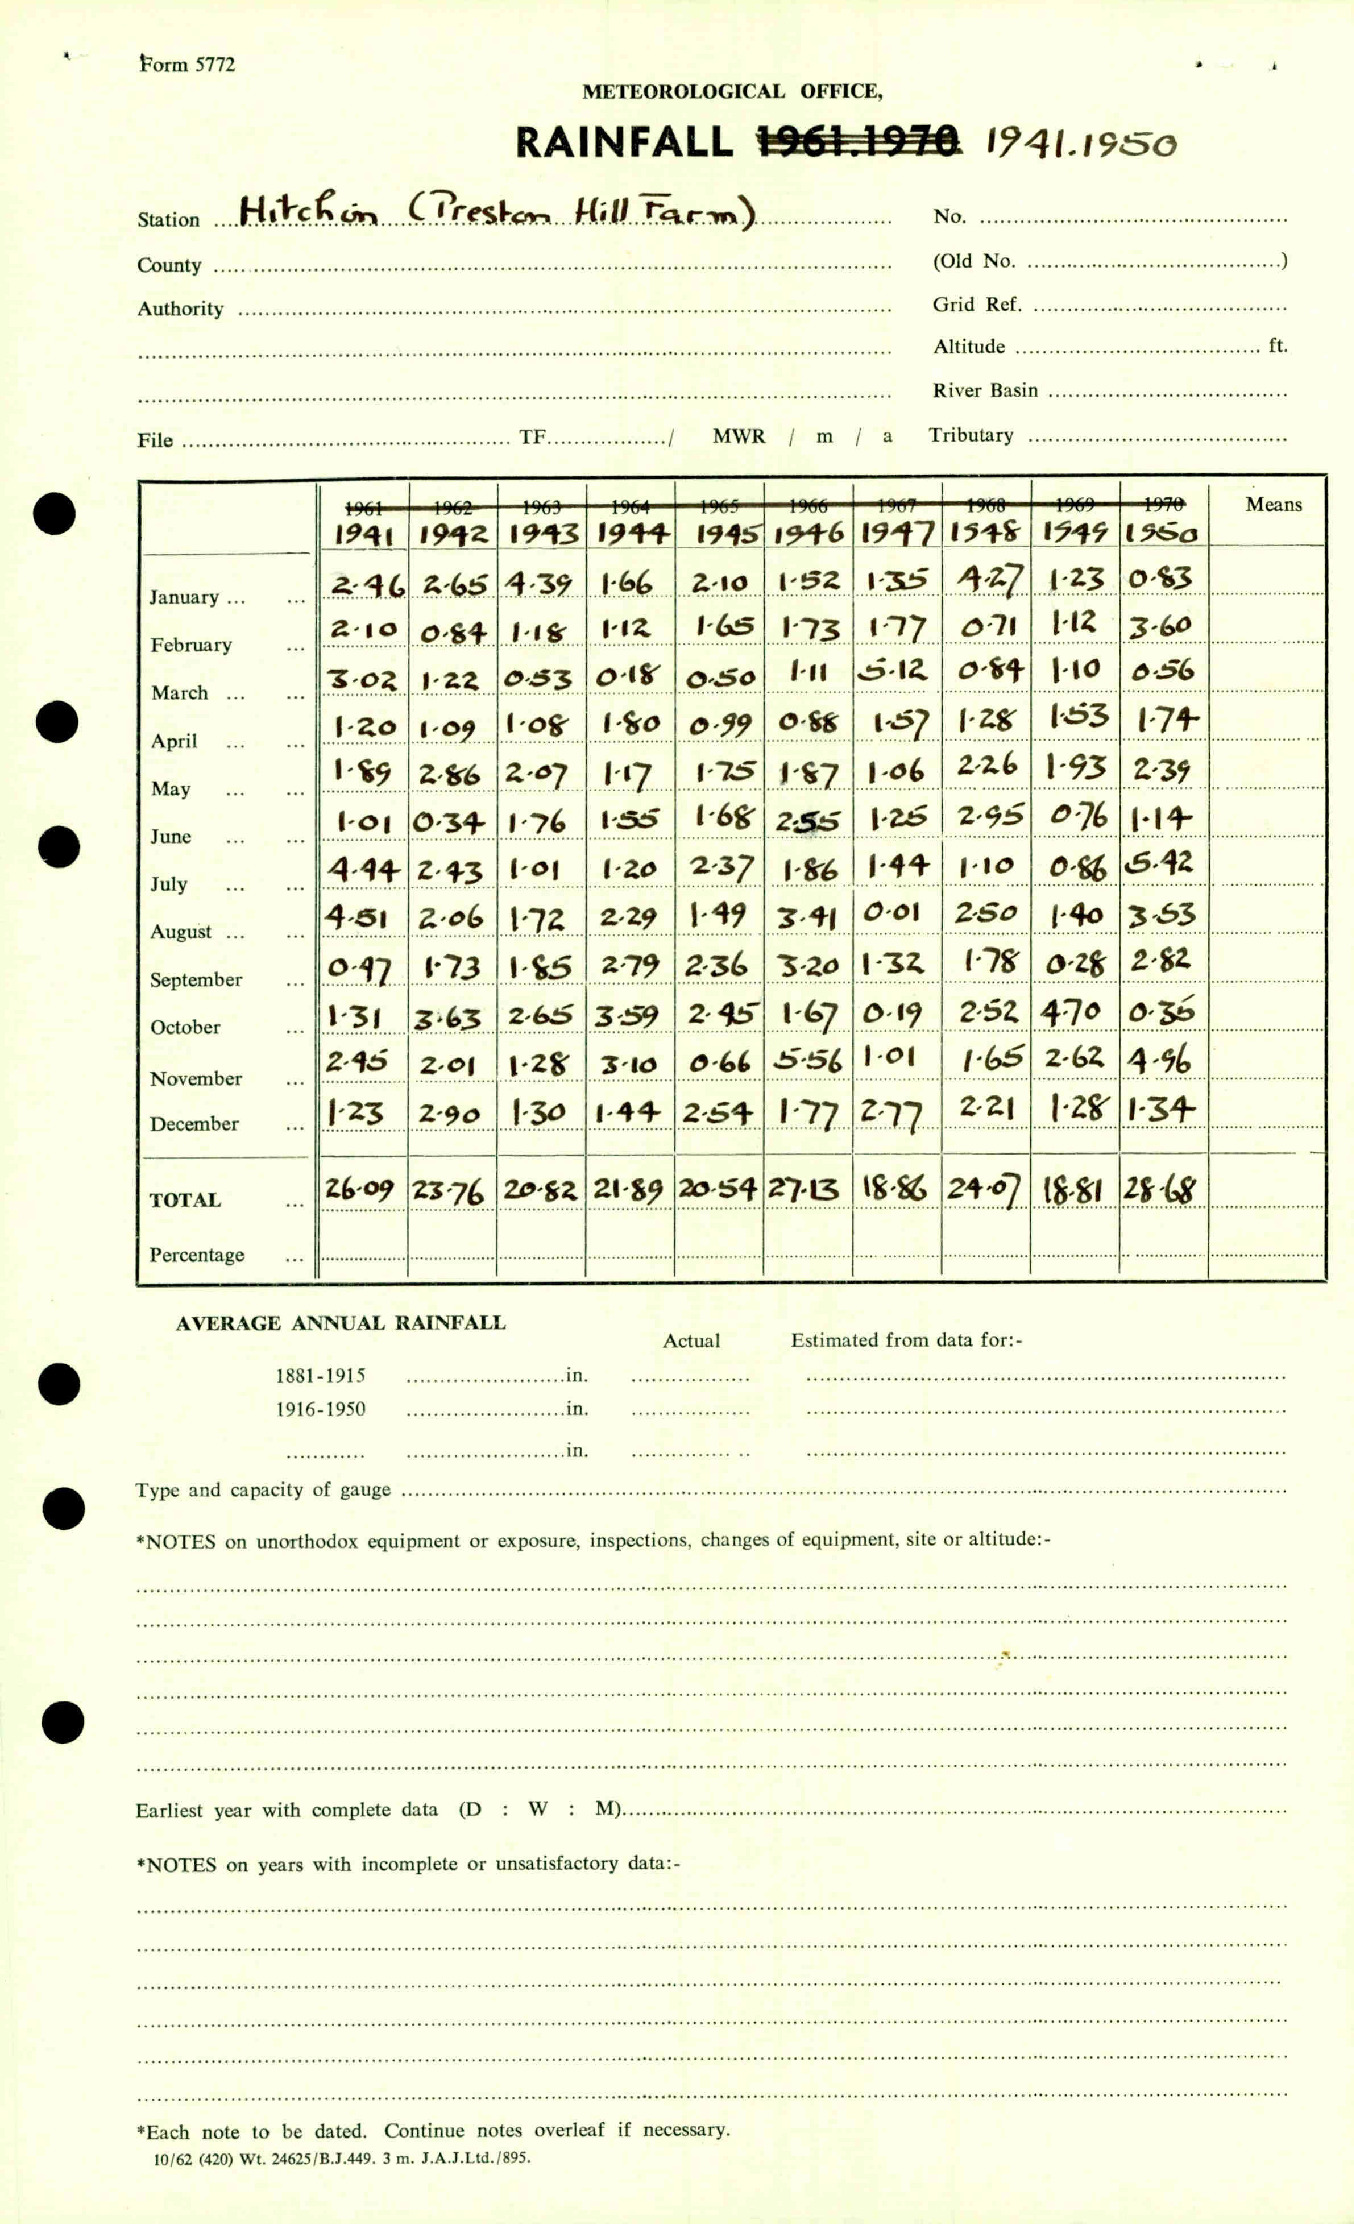 Form 5772
METEOROLOGICAL OFFICE,
RAINFALL 1961.1970 1941.1950
Station Hitchin (Preston Hill Farm) No.
County (Old No. )
Authority Grid Ref.
Altitude ft.
River Basin
File TF / MWR / m / a Tributary
1961 1962 1963 1964 1965 1966 1967 1968 1969 1970 Means
1941 1942 1943 1944 1945 1946 1947 1948 1949 1950
January ... ... 2.46 2.65 4.39 1.66 2.10 1.52 1.35 4.27 1.23 0.83
February ... 2.10 0.84 1.18 1.12 1.65 1.73 1.77 0.71 1.12 3.60
March ... ... 3.02 1.22 0.53 0.18 0.50 1.11 5.12 0.84 1.10 0.56
April ... ... 1.20 1.09 1.08 1.80 0.99 0.88 1.57 1.28 1.53 1.74
May ... ... 1.89 2.86 2.07 1.17 1.75 1.87 1.06 2.26 1.93 2.39
June ... ... 1.01 0.34 1.76 1.55 1.68 2.55 1.25 2.95 0.76 1.14
July ... ... 4.44 2.43 1.01 1.20 2.37 1.86 1.44 1.10 0.86 5.42
August ... ... 4.51 2.06 1.72 2.29 1.49 3.41 0.01 2.50 1.40 3.53
September ... 0.47 1.73 1.85 2.79 2.36 3.20 1.32 1.78 0.28 2.82
October ... 1.31 3.63 2.65 3.59 2.45 1.67 0.19 2.52 4.70 0.35
November ... 2.45 2.01 1.28 3.10 0.66 5.56 1.01 1.65 2.62 4.96
December ... 1.23 2.90 1.30 1.44 2.54 1.77 2.77 2.21 1.28 1.34
TOTAL ... 26.09 23.76 20.82 21.89 20.54 27.13 18.86 24.07 18.81 28.68
Percentage ...
AVERAGE ANNUAL RAINFALL
Actual Estimated from data for:-
1881-1915 in.
1916-1950 in.
in.
Type and capacity of gauge
*NOTES on unorthodox equipment or exposure, inspections, changes of equipment, site or altitude:-
Earliest year with complete data (D : W : M)
*NOTES on years with incomplete or unsatisfactory data:-
*Each note to be dated. Continue notes overleaf if necessary.
10/62 (420) Wt. 24625/B.J.449. 3 m. J.A.J.Ltd./895.